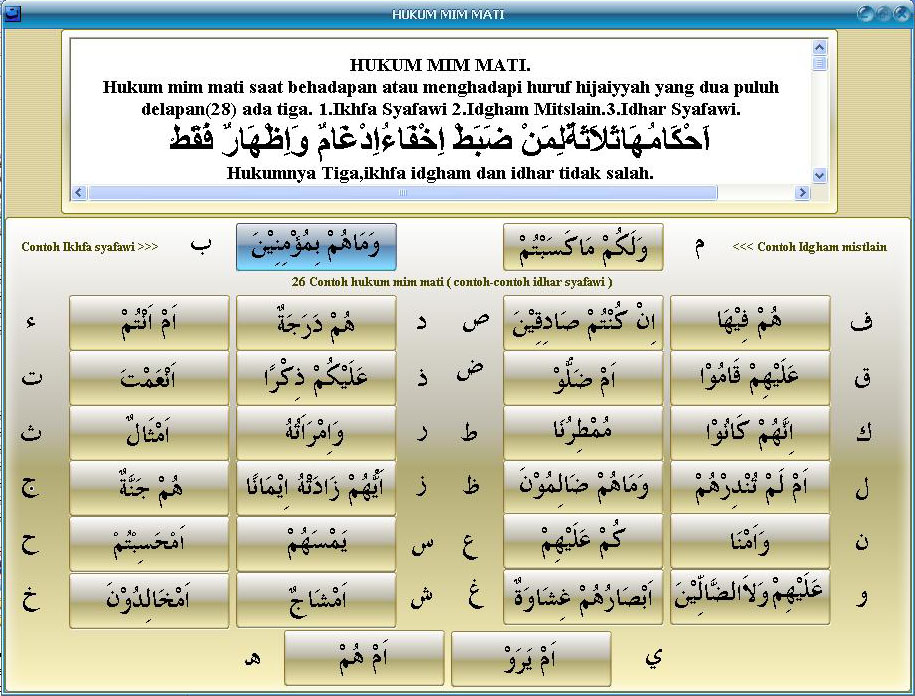 HUKUM MIM MATI
HUKUM MIM MATI.
Hukum mim mati saat behadapan atau menghadapi huruf hijaiyyah yang dua puluh
delapan(28) ada tiga. 1.Ikhfa Syafawi 2.Idgham Mitslain.3.Idhar Syafawi.
اَحْكَامُهَاثَلَاثَةٌلِمَنْ ضَبَطْ اِخْفَاءُاِدْغَامٌ وَاِظْهَارٌ فَقَطْ
Hukumnya Tiga,ikhfa idgham dan idhar tidak salah.
Contoh Ikhfa syafawi >>> ب وَمَاهُمْ بِمُؤْمِنِيْنَ وَلَكُمْ مَاكَسَبْتُمْ م <<< Contoh Idgham mistlain
26 Contoh hukum mim mati ( contoh-contoh idhar syafawi )
ء اَمْ اَنْتُمْ هُمْ دَرَجَةٌ د ص اِنْ كُنْتُمْ صَادِقِيْنَ هُمْ فِيْهَا ف
ت اَنْعَمْتَ عَلَيْكُمْ ذِكْرًا ذ ض اَمْ ضَلُّوْ عَلَيْهِمْ قَامُوْا ق
ث اَمْثَالٌ وَامْرَأَتُهُ ر ط مُمْطِرُنَا اِنَّهُمْ كَانُوْا ك
ج هُمْ جَنَّةٌ اَيُّهُمْ زَادَتْهُ اِيْمَانًا ز ظ وَمَاهُمْ ضَالِمُوْنَ اَمْ لَمْ تُنْدِرْهُمْ ل
ح اَمْحَسِبْتُمْ يَمْسَهُمْ س ع كُمْ عَلَيْهِمْ وَاَمْنَا ن
خ اَمْخَالِدُوْنَ اَمْشَاجٌ ش غ اَبْصَارُهُمْ غِشَاوَةٌ عَلَيْهِمْ وَلاَالضَّالِّيْنَ و
هـ اَمْ هُمْ اَمْ يَرَوْ ي